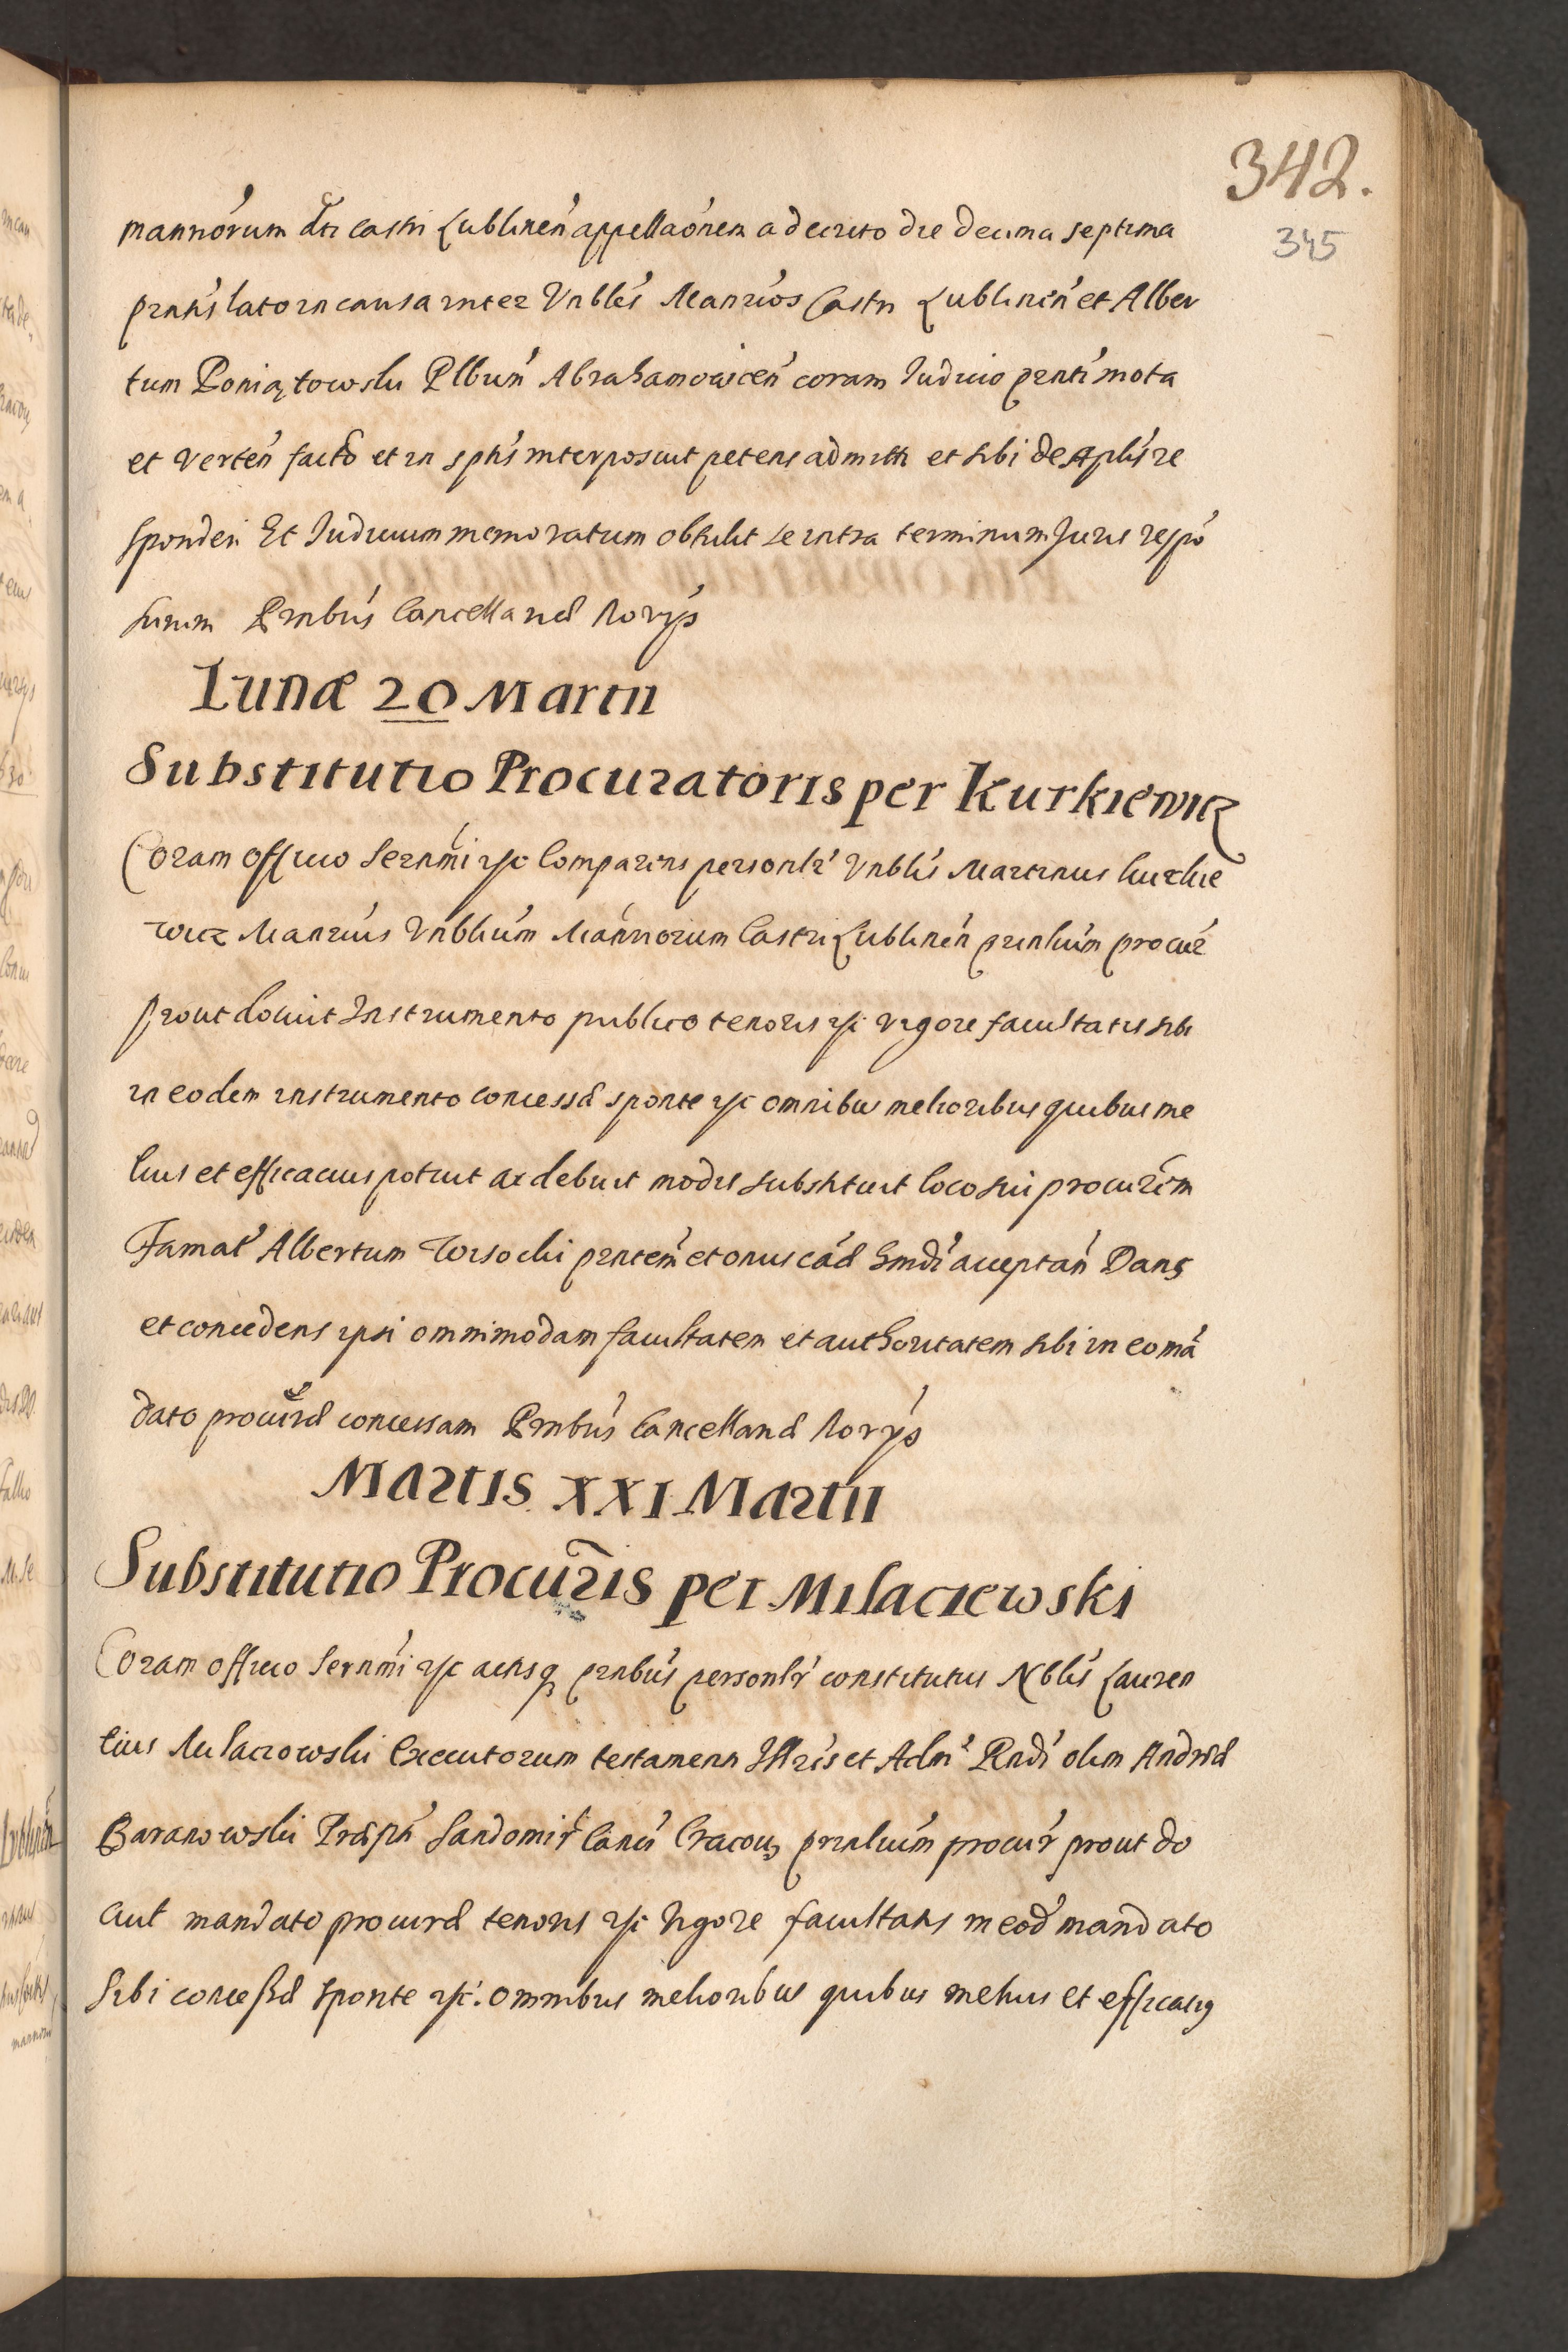 342.
345
mannórum dti Castri Lublinen' appellaónem a decreto die decima septima
prntis lato in causa inter Vnbles Manrios Castri Lublinen' et Alber
tum Poniątowski Plbum' Abrahamowicen' coram Iudicio prnti mota
et verten' facto et in sptis interposuit petens admitti et sibi de Aplis re
sponderi Et Iudicium memoratum obtulit se intra terminum Juris respo'
surum Prntbus Cancellariæ Norÿs
Lunæ 20 Martii
Substitutio Procuratoris per Kurkiewicz
Coram officio Serenmi &c Comparens personlr' Vnblis Martinus Kurkie
wicz Manrius Vnblium Mánnorum Castri Lublinen' prinlium procur'
prout docuit Instrumento publico tenoris &c vigore facultatis sibi
in eodem instrumento concessæ sponte &c omnibus melioribus quibus me
lius et efficacius potuit ac debuit modis substituit loco sui procurem
Famat' Albertum Wisocki prntem' et onus eád' hmdi' acceptan' Dans
et concedens ipsi omnimodam facultatem et authoritatem sibi in eo mã
dato procurræ concessam Prntbus' Cancellariæ Norÿs
Martis XXI Martii
Substitutio Procuris per Milaczewski
Coram officio Serenmi &c actisq prntbus' personlr' constitutus Nblis' Lauren
tius Milaczowski Executorum testamenti Illris et Adm' Rndi' olim Andreæ
Baranowski Præpti' Sandomir' Canci' Cracou prinlium' procur' prout do
cuit mandato procurræ tenoris &c vigore facultatis in eod' mandato
sibi concessæ sponte &c. omnibus melioribus quibus melius et efficatig